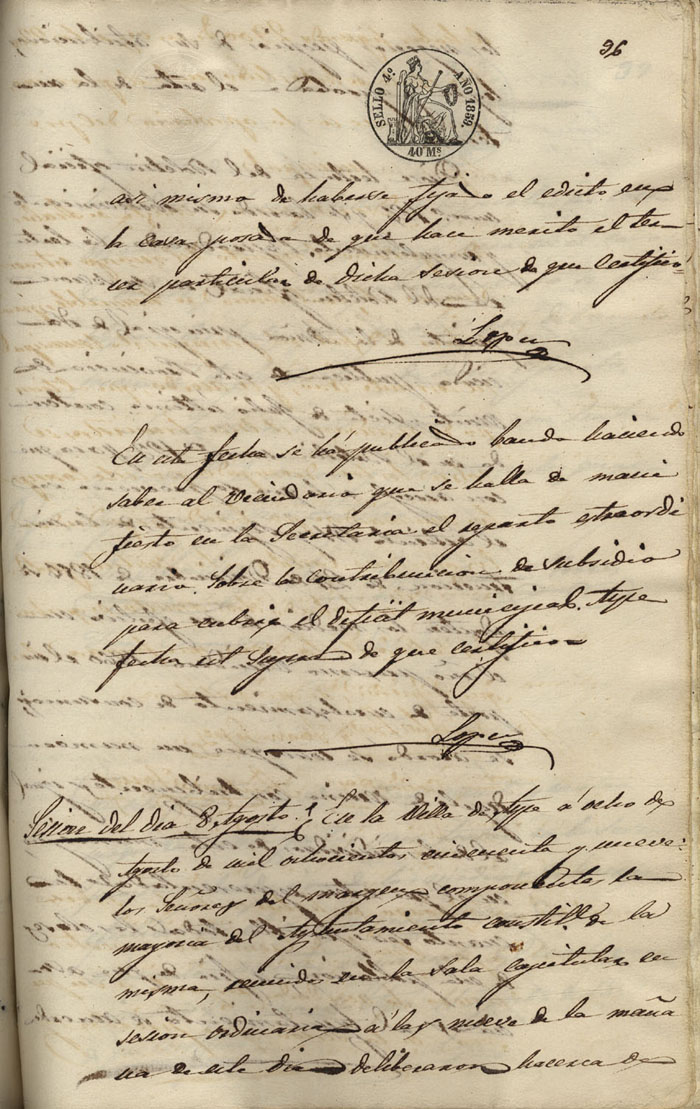 96
SELLO 4º AÑO 1859.
40 Ms.
asi mismo de haberse fijado el edicto en
la casa posada de que hace merito el ter-
cer particular de dicha sesion de que Certifico=
Lopez
En este fecha se há publicado bando haciendo
saber al Vecindario que se halla de mani
fiesto en la Secretaria el reparto estraordi
nario sobre la contribucion de subsidio
para cubrir el deficit municipal. Aspe
fecha ut supra de que certifico=
Lopez
Sesion del dia 8 Agosto En la Villa de Aspe á ocho de
Agosto de mil ochocientos cincuenta y nueve:
los Señores del margen componentes la
mayoria del Ayuntamiento constitl. de la
misma, reunidos en la sala capitular en
sesion ordinaria á las nueve de la maña
na de este dia deliberaron hacerca de